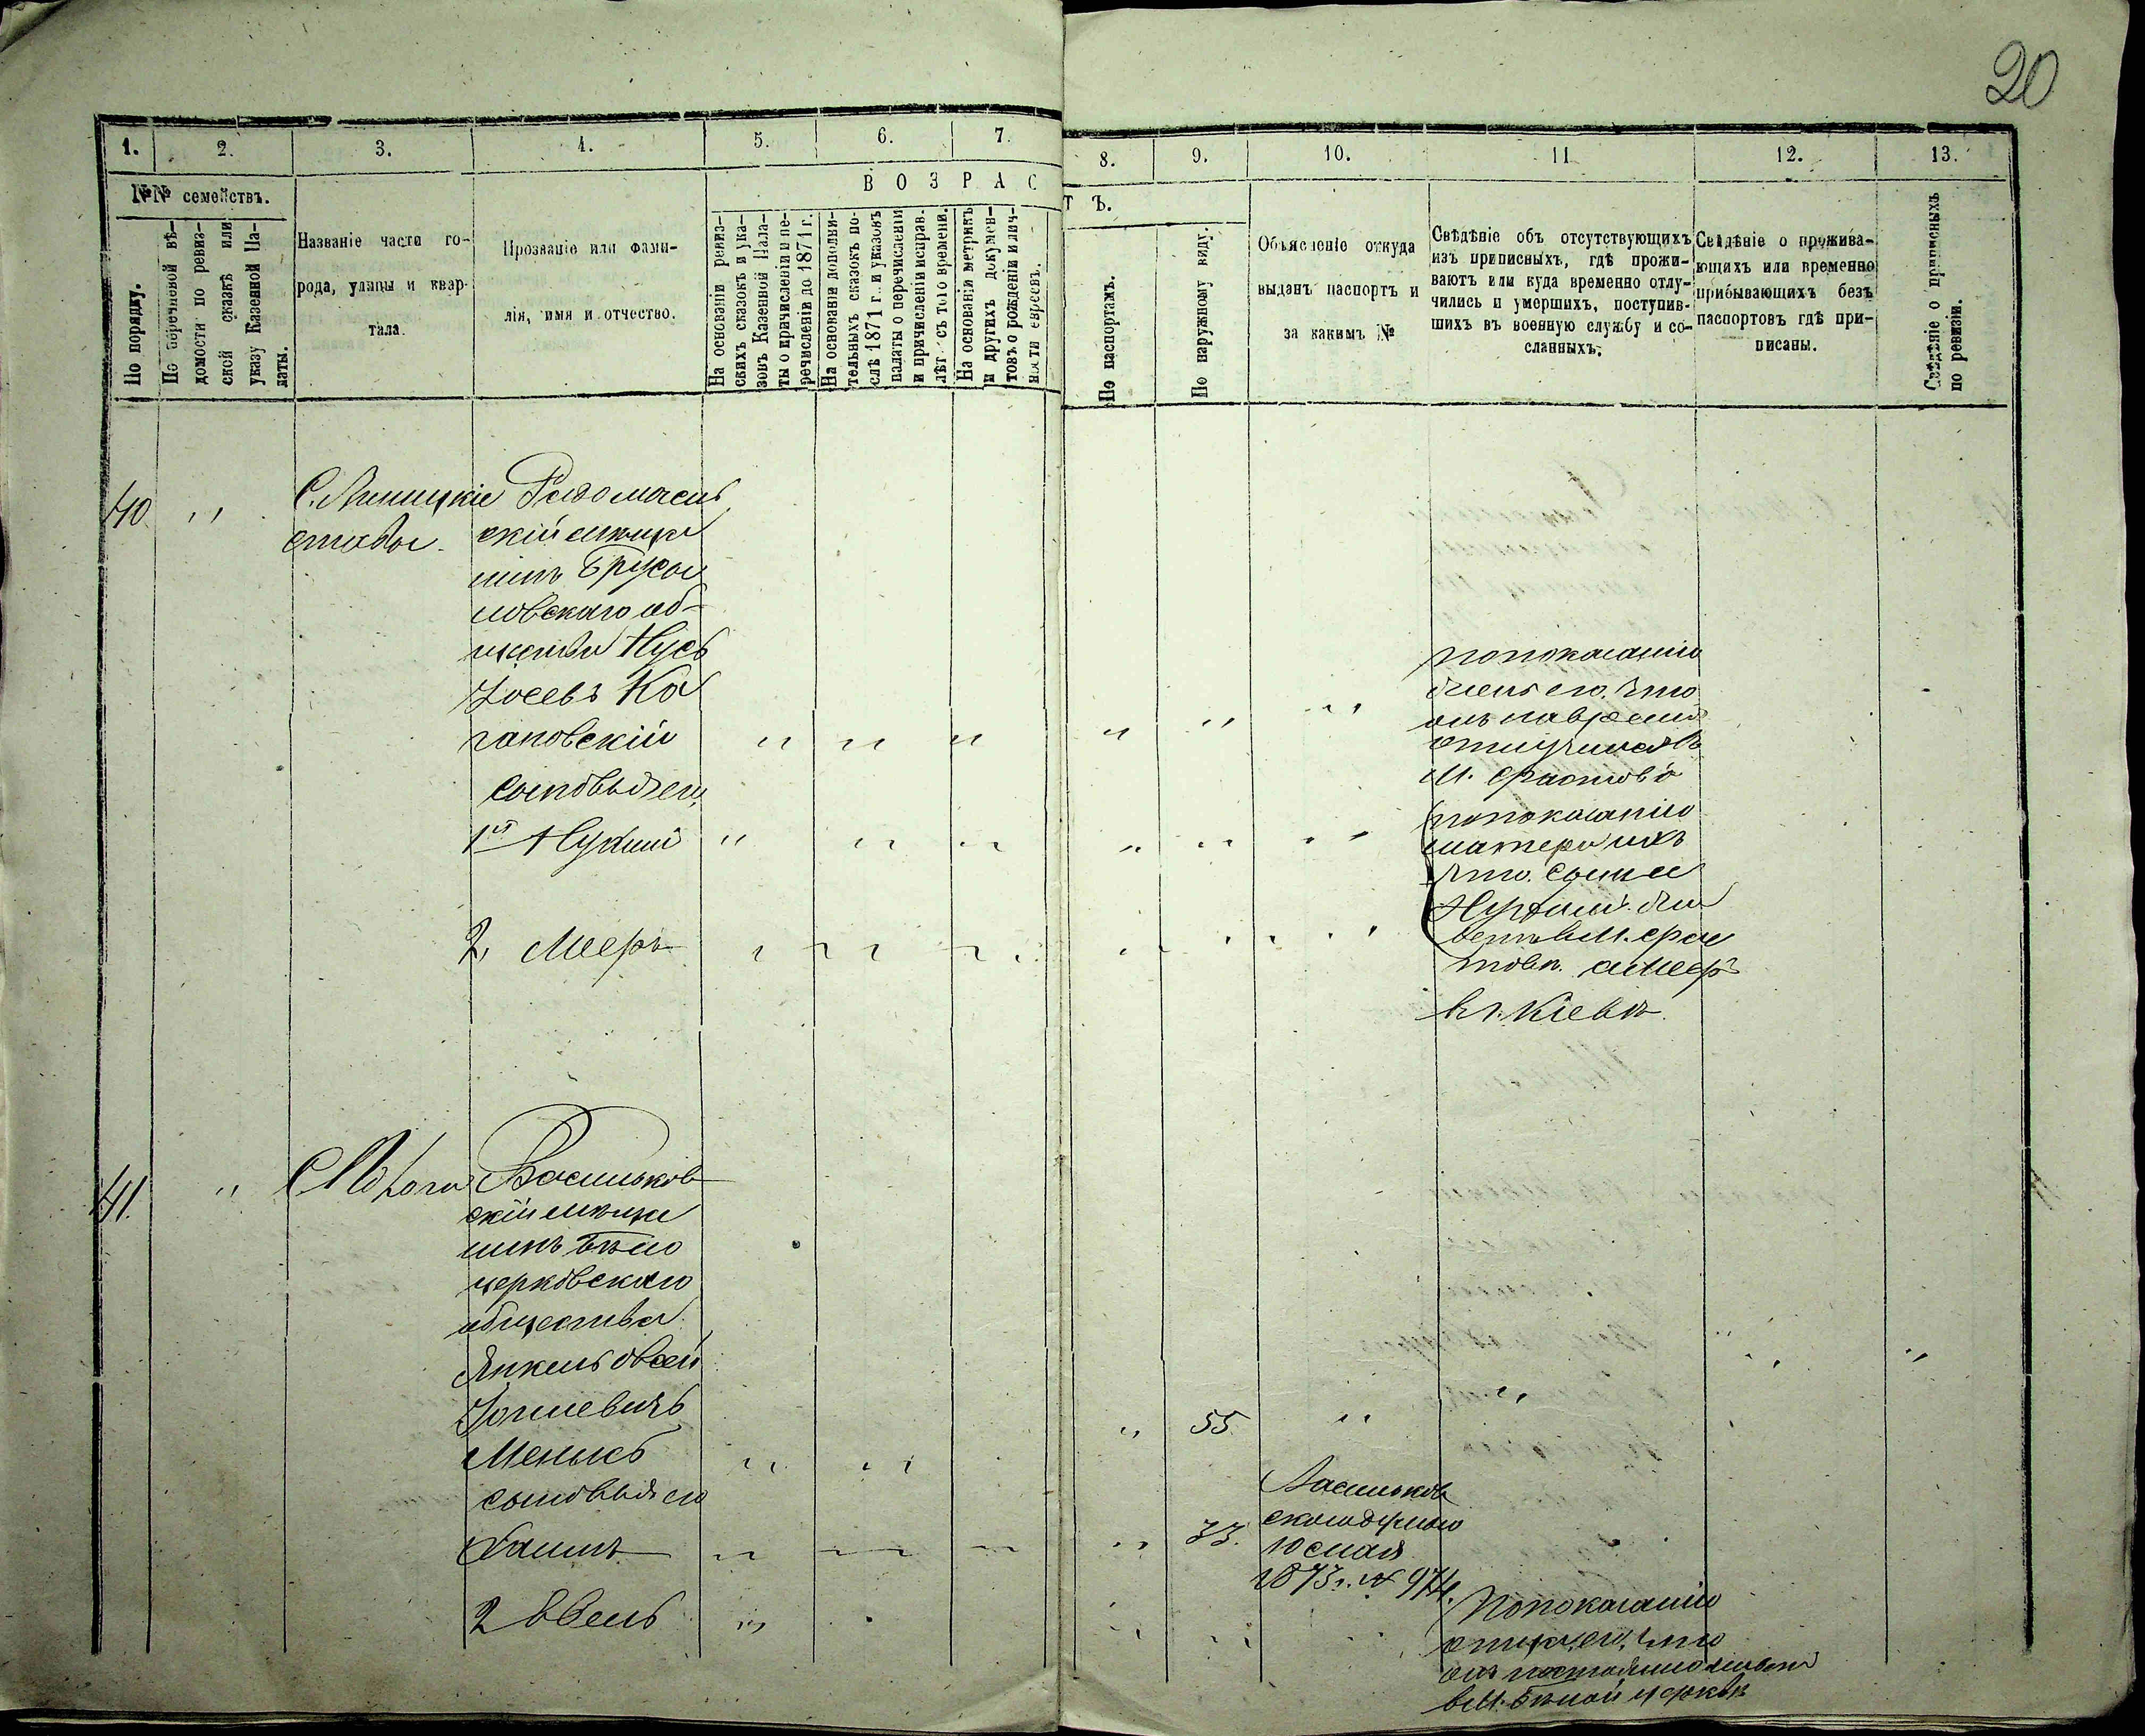 20
1. 2. 3. 4. 5. 6. 7. 8. 9. 10. 11 12. 13.
№№ семействъ.
По порядку.
По перечневой вѣ-
домости по ревиз-
ской сказкѣ или
указу Казенной Па-
латы.
Названіе части го-
рода, улицы и квар-
тала.
Прозваніе или фами-
лія, имя и отчество.
ВОЗРАСТЪ.
На основаніи ревиз-
скихъ сказокъ и ука-
зовъ Казенной Пала-
ты о причисленіи и пе-
речисленіи до 1871 г.
На основаніи дополни-
тельныхъ сказокъ по-
слѣ 1871 г. и указовъ
палаты о перечисленіи
и причисленіи исправ.
лѣт съ того времени.
На основаніи метрикъ
и другихъ докумен-
товъ о рожденіи и лич-
ности евреевъ.
По паспортамъ.
По наружному виду.
Объясненіе откуда
выданъ паспортъ и
за какимъ №
Свѣдѣніе объ отсутствующихъ
изъ приписныхъ, гдѣ прожи-
ваютъ или куда временно отлу-
чились и умершихъ, поступив-
шихъ въ военную службу и со-
сланныхъ.
Свѣдѣніе о прожива-
ющихъ или временно
прибывающихъ безъ
паспортовъ гдѣ при-
писаны.
Свѣдѣніе о приписныхъ
по ревизіи.
40 " С.
ставы.
Радомысль
скій мѣща
нинъ Бруси
ловскаго об-
щества Нусь
Іосевъ Ко
гановскій " " " " " "
сыновья его
1й Нухим " " " " " "
2, Мееръ " " " " " "
по показанію
что
онъ на время
отлучился въ
м. Фастовъ
по показанію
матери ихъ
что сынъ ее
Нухим жи
ветъ в м. Фас
товѣ. а Меер
в г. Кіевѣ.
41. " С. Мотови Васильков
скій мѣща
нинъ Бѣло
церковскаго
общества
Янкель Овсей
Іоселевичъ
" 55. " " " "
сыновья его
Хаимъ " " " " 33.
Васильков
ской думою
10 мая
1873 г. № 974.
2 "
По показанію
отца его, что
онъ постоянно живет
в м. Бѣлой церквѣ